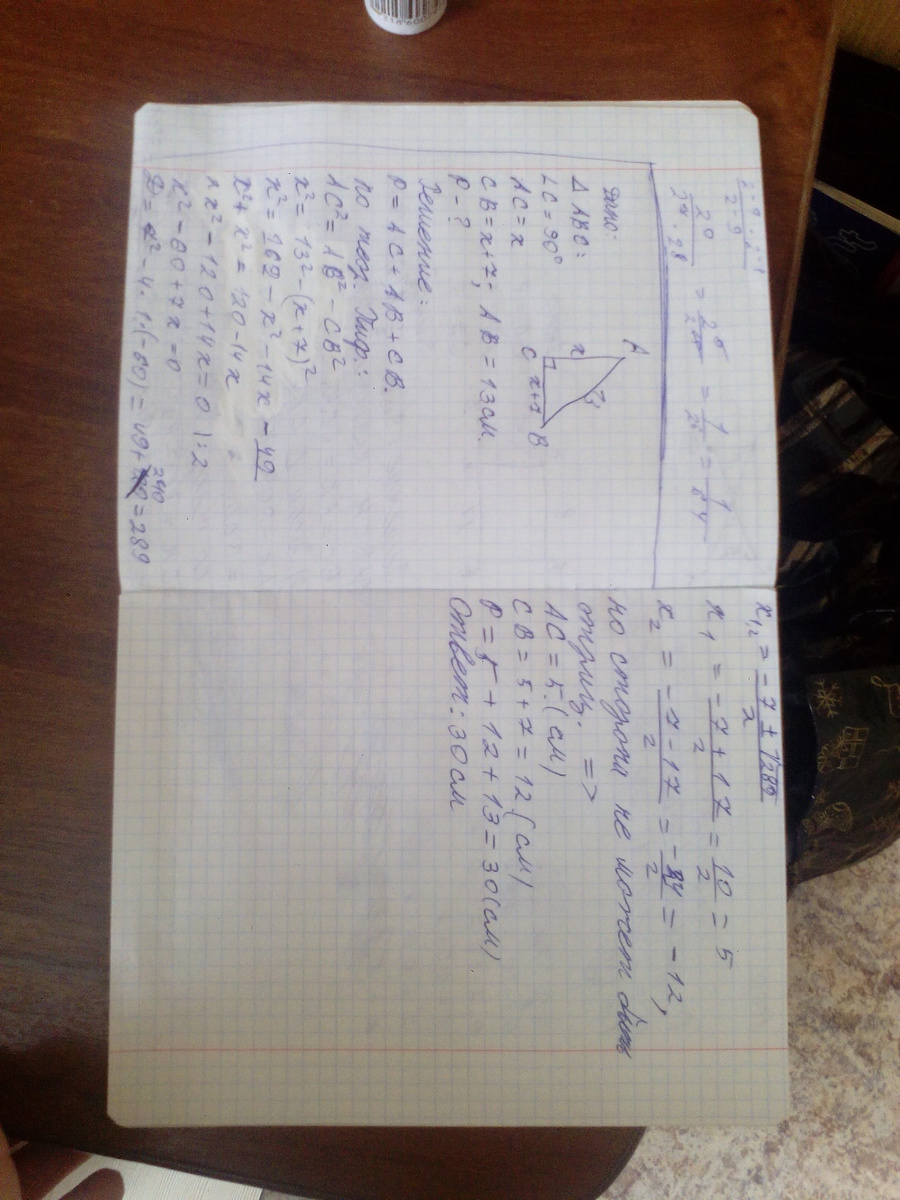 2 - 9
20 = 20 = 1 = 1
84
Дано:
Δ ABC:
∠C = 90°
AC = x
CB = x+7; AB = 13 см.
P - ?
A
x
13
C x+7 B
Решение:
P = AC + AB + CB.
по теор. Пиф.:
AC² = AB² - CB²
x² = 13² - (x+7)²
x² = 169 - x² - 14x - 49
x² + x² = 120 - 14x
2x² - 120 + 14x = 0 | : 2
x² - 60 + 7x = 0
D = 7² - 4 · 1 · (-60) = 49 + 240 = 289
x₁,₂ = (-7 ± √289)/2
x₁ = (-7 + 17)/2 = 10/2 = 5
x₂ = (-7 - 17)/2 = -24/2 = -12,
но сторона не может быть
отриц. =>
AC = 5 (см)
CB = 5 + 7 = 12 (см)
P = 5 + 12 + 13 = 30 (см)
Ответ: 30 см